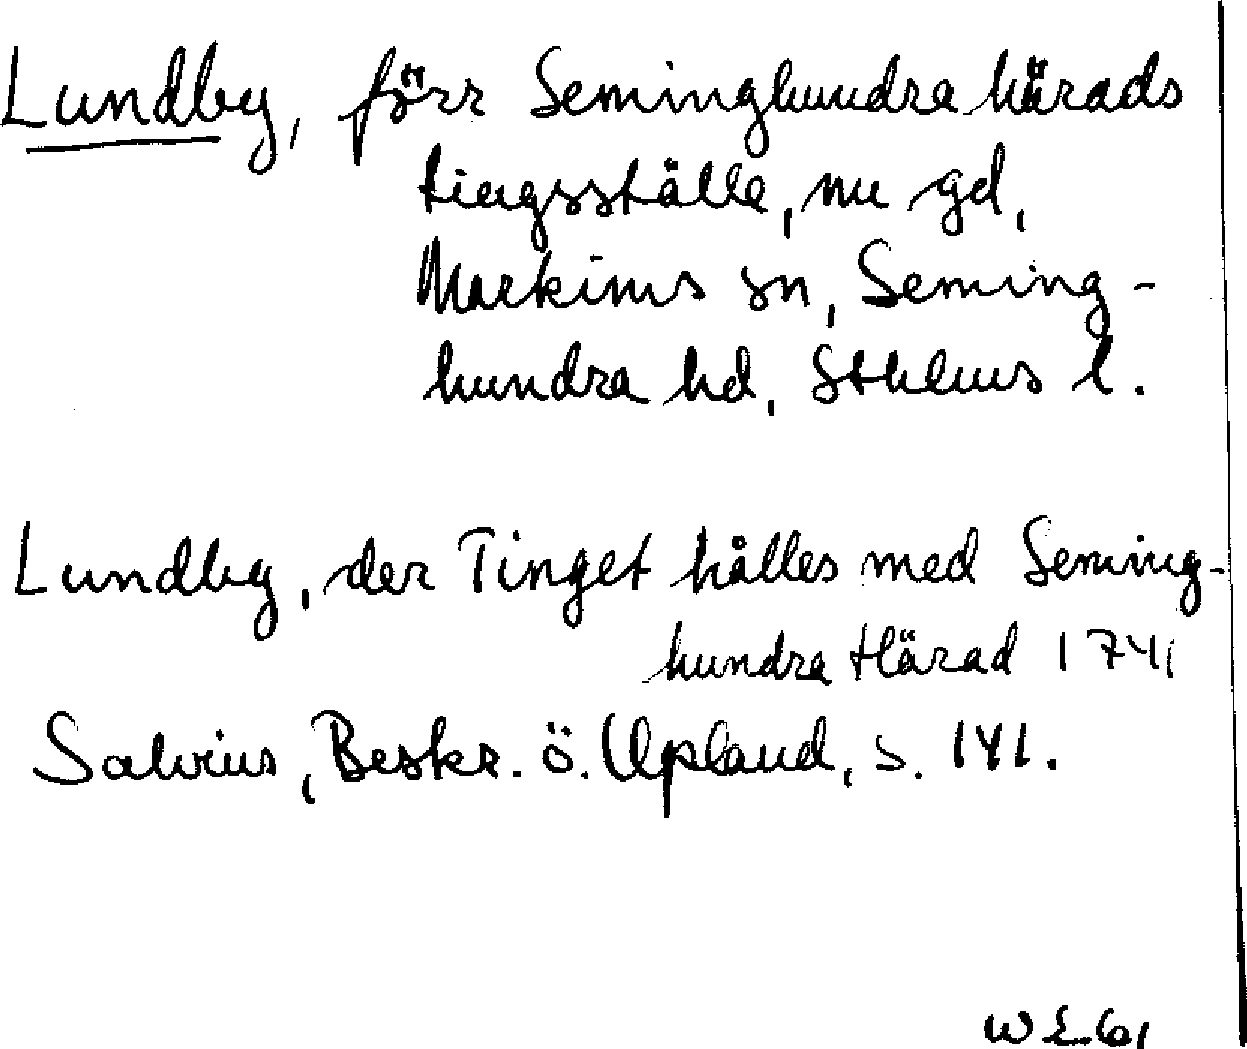 Lundby, förr Seminghundra härads
tingsställe, nu gd,
Markims sn, Seming-
hundra hd, Sthlms l.
Lundby, der Tinget hålles med Seming-
hundra Härad 1741
Salvius, Beskr. ö. Upland, s. 141.